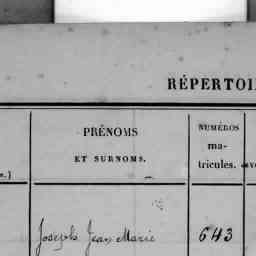 RÉPERTOI
PRÉNOMS
ET SURNOMS.
NUMÉROS
ma-
tricules.
Joseph Jean Marie
643